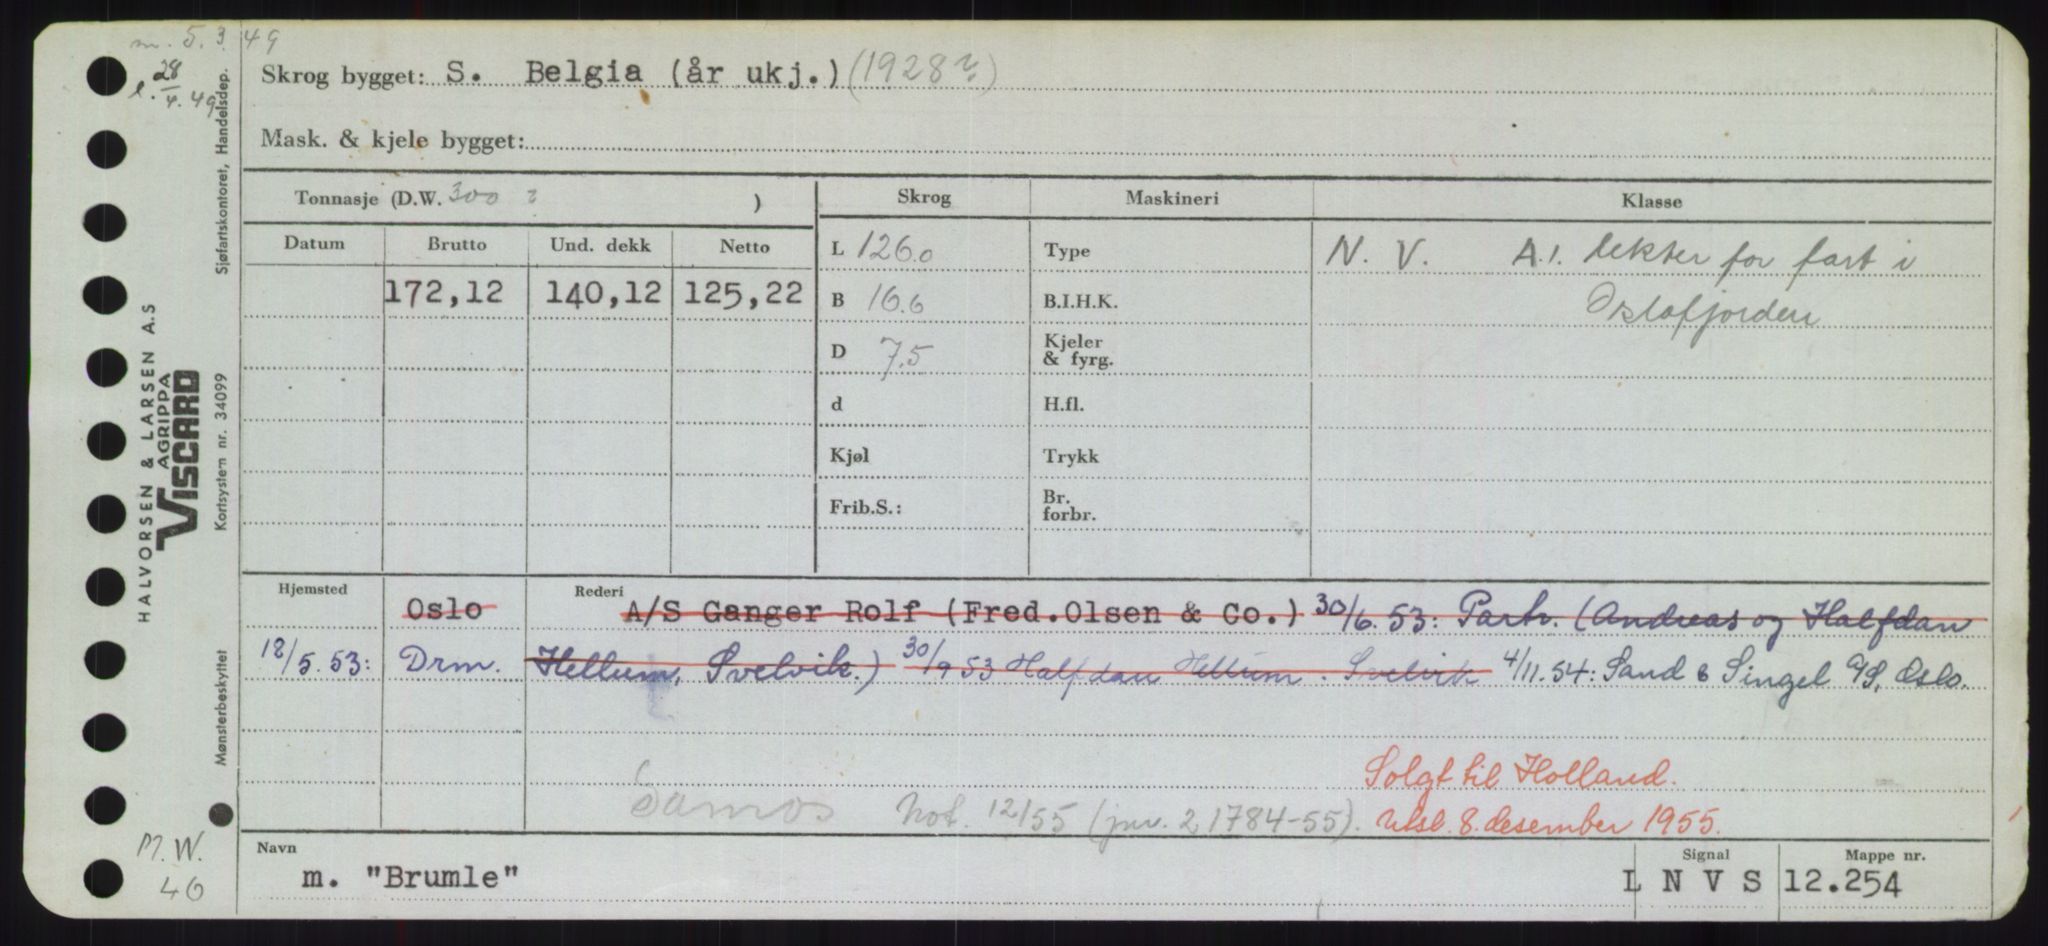 m. 5.3.49
l. 28/4.49
Skrog bygget: S. Belgia (år ukj.) (1928?)
Mask. & kjele bygget:
Tonnasje (D.W. 300 ? )
Skrog Maskineri Klasse
Datum Brutto Und. dekk Netto
172,12 140,12 125,22
L 126.0 Type N. V. A.1. lekter for fart i
B 16.6 B.I.H.K. Oslofjorden
D 7.5 Kjeler & fyrg.
d H.fl.
Kjøl Trykk
Frib.S.: Br. forbr.
Hjemsted Rederi
Oslo A/S Ganger Rolf (Fred.Olsen & Co.) 30/6.53: Partr. (Andreas og Halfdan
18/5.53: Drm. Hellum, Svelvik.) 30/9 53 Halfdan Hellum. Svelvik 4/11.54: Sand & Singel A/S, Oslo.
Solgt til Holland.
Samos Not. 12/55 (jnr. 21784-55). Utsl. 8. desember 1955.
Navn Signal Mappe nr.
m. "Brumle" L N V S 12.254
M.W.
46
HALVORSEN & LARSEN A.S
AGRIPPA
VISCARD
Sjøfartskontoret, Handelsdep.
Kortsystem nr. 34099
Mønsterbeskyttet